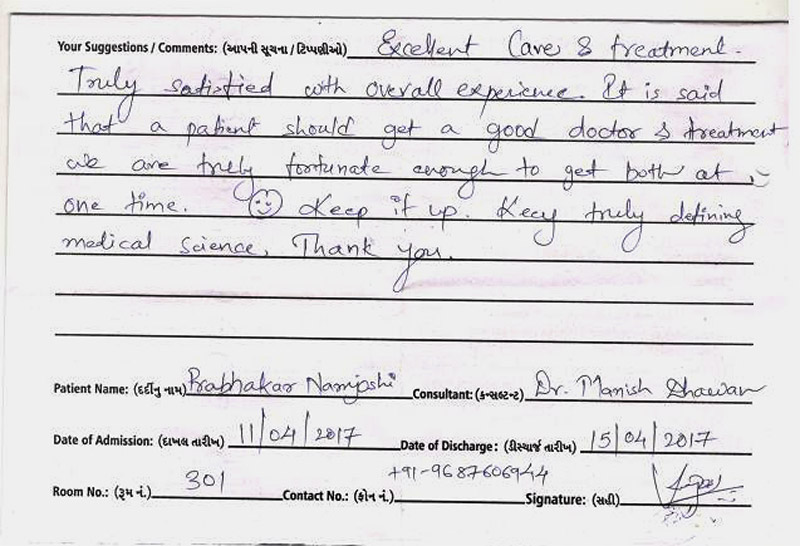 Your Suggestions / Comments: (આપની સૂચના / ટિપ્પણીઓ) Excellent Care & treatment.
Truly satisfied with overall experience. It is said
that a patient should get a good doctor & treatment
we are truly fortunate enough to get both at
one time. Keep it up. Keep truly defining
medical science, Thank you.
Patient Name: (દર્દીનું નામ) Prabhakar Namjoshi Consultant: (કન્સલ્ટન્ટ) Dr. Manish Dhawan
Date of Admission: (દાખલ તારીખ) 11/04/2017 Date of Discharge: (ડીસ્ચાર્જ તારીખ) 15/04/2017
Room No.: (રૂમ નં.) 301 Contact No.: (ફોન નં.) +91-9687606944 Signature: (સહી)